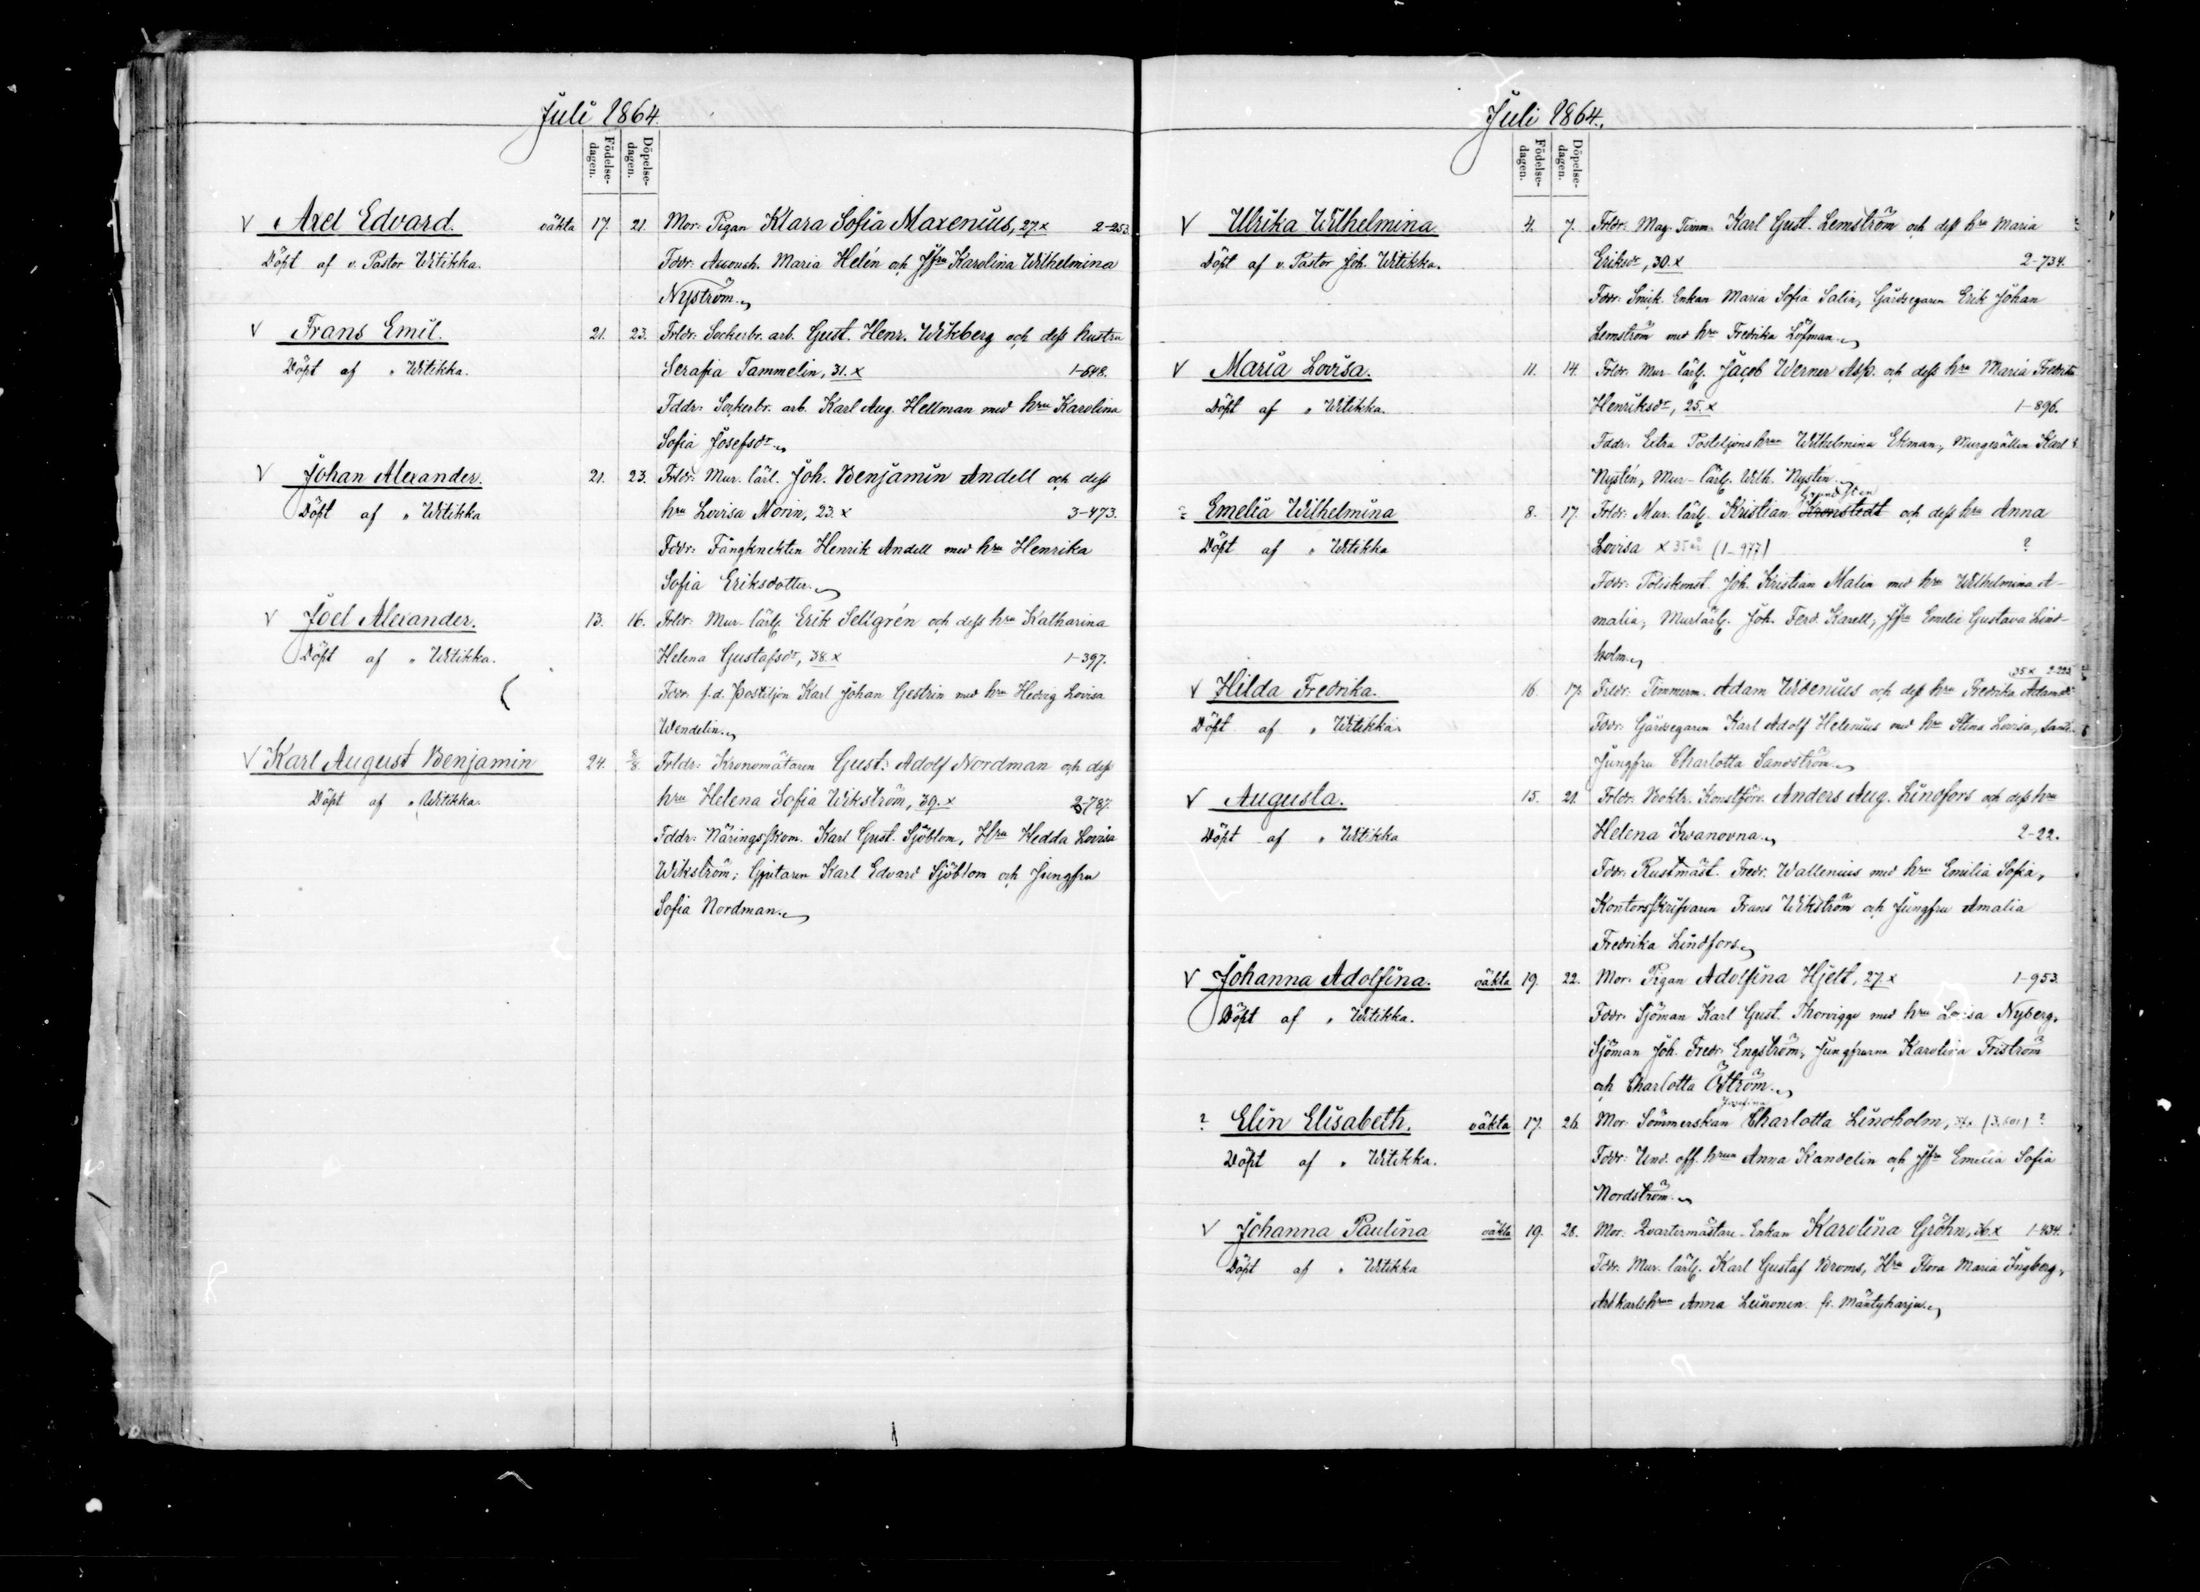 Juli 1864.
Födelse-dagen.
Döpelse-dagen.
Axel Edvard. oäkta 17. 21. Mor: Pigan Klara Sofia Maxenius, 27.x 2-253.
Döpt af v. Pastor Witikka. Fddr: Accouch. Maria Helén och Jfru Karolina Wilhelmina
Nyström.
Frans Emil. 21. 23. Frldr: Sockerbr. arb. Gust. Henr. Wikberg och dess hustru
Döpt af " Witikka. Serafia Tammelin, 31.x 1-648.
Fddr: Sockerbr. arb. Karl Aug. Hellman med hru Karolina
Sofia Josefsdr.
Johan Alexander. 21. 23. Frldr: Mur. lärl. Joh. Benjamin Andell och dess
Döpt af " Witikka hru Lovisa Morin, 23.x 3-473.
Fddr: Fångknekten Henrik Andell med hru Henrika
Sofia Eriksdotter.
Joel Alexander. 13. 16. Frldr: Mur-lärl. Erik Sellgrén och dess hru Katharina
Döpt af " Witikka. Helena Gustafsdr, 38.x 1-397.
Fddr: f.d. Postiljon Karl Johan Gestrin med hru Hedvig Lovisa
Wendelin.
Karl August Benjamin 24. 8/8. Frldr: Kronomätaren Gust. Adolf Nordman och dess
Döpt af " Witikka. hru Helena Sofia Wikström, 39.x 2-787.
Fddr: Näringsidkom. Karl Gust. Sjöblom, Hru Hedda Lovisa
Wikström; Karl Edvard Sjöblom och Jungfru
Sofia Nordman.
Juli 1864.
Födelse-dagen.
Döpelse-dagen.
Ulrika Wilhelmina 4. 7. Frldr: Mag. Timm. Karl Gust. Lemström och dess hru Maria
Döpt af v. Pastor Joh. Witikka. Eriksdr, 30.x 2-734.
Fddr: Snik. Enkan Maria Sofia Salin, Gårdsegaren Erik Johan
Lemström med hru Fredrika Löfman.
Maria Lovisa. 11. 14. Frldr: Mur-lärl. Jacob Werner Asp. och dess hru Maria Fredrika
Döpt af " Witikka. Henriksdr, 25.x 1-896.
Fddr: Extra Postiljons hrun Wilhelmina Ekman, Murgesällen Karl
Nystén, Mur-lärl. Wilh. Nystén.
Emelia Wilhelmina 8. 17. Frldr: Mur. lärl. Kristian Kronstedt och dess hru Anna
Döpt af " Witikka Lovisa x 35 år (1-977) ?
Fddr: Poliskonst. Joh. Kristian Malin med hru Wilhelmina A-
malia, Murlärl. Joh. Ferd. Karell, Jfru Emelie Gustava Lind-
holm.
35x 2-225
Hilda Fredrika. 16. 17. Frldr: Timmerm. Adam Widenius och dess hru Fredrika Adamsdr
Döpt af " Witikka. Fddr: Gårdsegaren Karl Adolf Helenius med hru Stina Lovisa, samt
Jungfru Charlotta Sandström.
Augusta. 15. 21. Frldr: Boktr. Konstförv. Anders Aug. Lindfors och dess hru
Döpt af " Witikka Helena Iwanovna. 2-22.
Fddr: Rustmäst. Fredr. Wallenius med hru Emilia Sofia,
Kontorsskrifvaren Frans Wikström och Jungfru Amalia
Fredrika Lindfors.
Johanna Adolfina. oäkta 19. 22. Mor: Pigan Adolfina Hjelt, 27.x 1-953.
Döpt af " Witikka. Fddr: Sjöman Karl Gust. Thorvigge med hru Lovisa Nyberg,
Sjöman Joh. Fredr. Engström, Jungfrurna Karolina Friström
och Charlotta Öström.
Josefina
? Elin Elisabeth. oäkta 17. 26. Mor: Sömmerskan Charlotta Lindholm, (3.601) ?
Döpt af " Witikka. Fddr: Und. off. hrun Anna Kandelin och Jfru Emelia Sofia
Nordström.
Johanna Paulina oäkta 19. 28. Mor: Qvartermästare-Enkan Karolina Gröhn, 36.x 1-434.
Döpt af " Witikka Fddr: Mur. lärl. Karl Gustaf Broms, Hru Flora Maria Ingberg,
Arbkarls hrun Anna Leinonen fr. Mäntyharju.